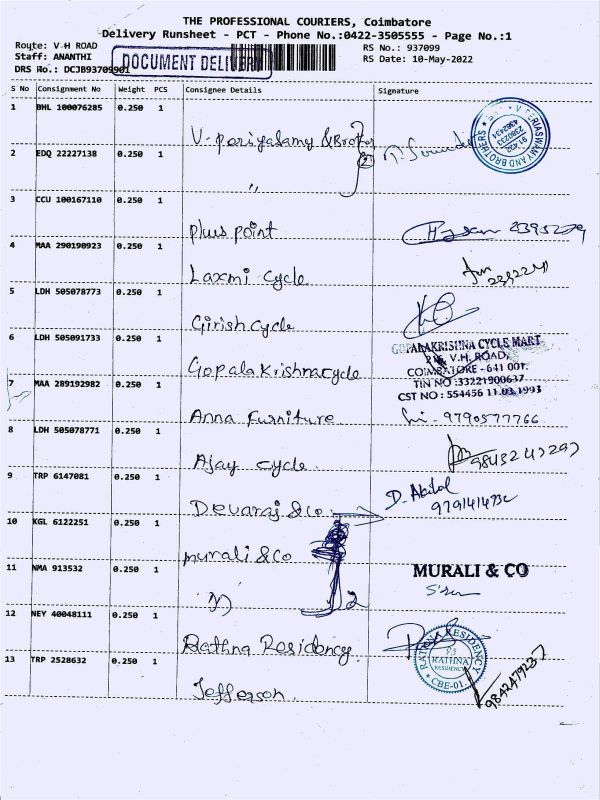 THE PROFESSIONAL COURIERS, Coimbatore
Delivery Runsheet - PCT - Phone No.:0422-3505555 - Page No.:1
Route: V H ROAD
RS No.: 937099
Staff: ANANTHI
RS Date: 10-May-2022
DRS No.: DCJB93709901
DOCUMENT DELIVERY
S No Consignment No Weight PCS Consignee Details Signature
1 BHL 100076285 0.250 1
V. periyasamy & Brother
V. PERIASWAMY AND BROTHERS
2 EDQ 22227138 0.250 1
"
3 CCU 100167110 0.250 1
plus point
4 MAA 290190923 0.250 1
Laxmi cycle
5 LDH 505078773 0.250 1
Girish cycle
6 LDH 505091733 0.250 1
Gopala Krishnacycle
GOPALAKRISHNA CYCLE MART
216, V.H. ROAD,
COIMBATORE - 641 001.
TIN NO :33221900637
CST NO : 554456 11.03.1993
7 MAA 289192982 0.250 1
Anna Furniture
9790577766
8 LDH 505078771 0.250 1
Ajay cycle.
9 TRP 6147081 0.250 1
Devaraj & co.
10 KGL 6122251 0.250 1
murali & co
11 NMA 913532 0.250 1
2
MURALI & CO
12 NEY 40048111 0.250 1
Rathna Residency.
RATHNA RESIDENCY
RATHNA
RESIDENCY
CBE-01.
13 TRP 2528632 0.250 1
Jefferson.
9842479237